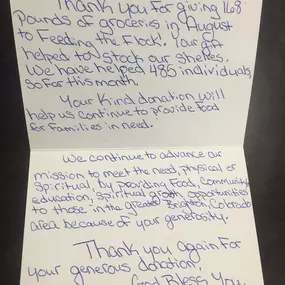 Thank you for giving 168
pounds of groceries in August
to Feeding the Flock! Your gift
helped to stock our shelves.
We have helped 485 individuals,
so far this month.
Your kind donation will
help us continue to provide food
for families in need.
We continue to advance our
mission to meet the need, physical or
spiritual, by providing food, community
education, spiritual growth opportunities
to those in the greater Brighton, Colorado
area because of your generosity.
Thank you again for
your generous donation,
God Bless You